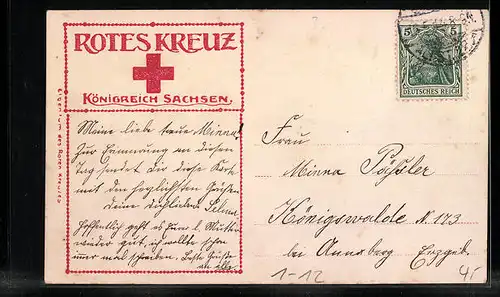 ROTES KREUZ
KÖNIGREICH SACHSEN.
Eigentum des Roten Kreuzes
Meine liebe treue Minna!
Zur Erinnerung an diesen
Tag sendet dir diese Karte
mit den herzlichsten Grüßen
Deine
Hoffentlich geht es Eurer l. Mutter
wieder gut, ich wollte schon
immer mal schreiben. Beste Grüße
an alle.
5 5
DEUTSCHES REICH
Frau
Minna
Königswalde N. 173
bei Annaberg Erzgeb.
1-12